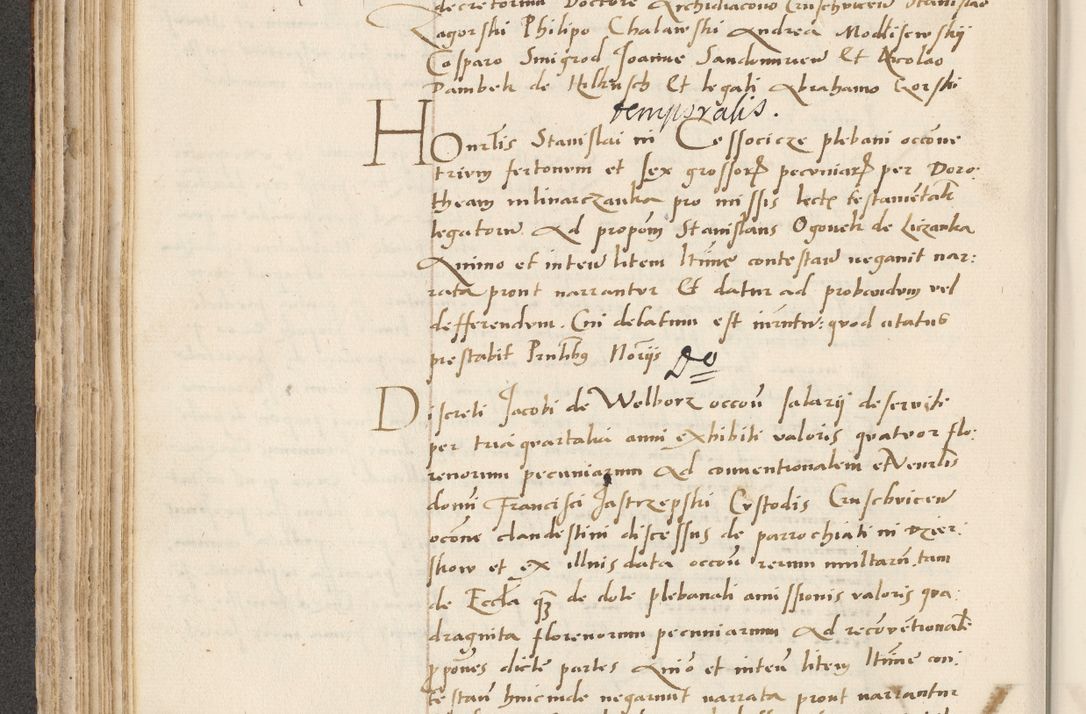 decretorum Doctore Archidiacono Cruschvicen Stanislao
Zagorski Philipo Chalawski Andrea Modlisewskij
Casparo Smigrod Joanne Sandomirien Et Nicolao
Dambek de Ilkusch Et legali Abrahamo Gorski
temporalis.
Honrlis Stanislai in Cossocicze plebani occone
trium fertonum et sex grossor pecuniar per Doro:
theam mlinarczanka pro missis lect testamentali
legatorum Ad proponem Stanislaus Ogonek de Liczanka
Animo et inten litem ltime contestan negauit nar:
rata prout narrantur Et datur ad probandum vel
defferendum. Cui delatum est iurmtu: quod statuto
prestabit Prntibus Norijs Do
Discreti Jacobi de Wolborz occon salarij deseruite
per tria quartalia anni exhibiti valoris quatuor flo:
renorum pecuniarum Ad conuentionalem et Venrlis
domini Francisci Jastrzepski Custodis Cruschvicen
occone clandestini discessus de parrochiali in Dzier:
skow et ex illius data occon rerum multarum tam
de Eccla qz de dote plebanali amissionis valoris qua:
draginta florenorum pecuniarum Ad reconventionale
ppones dicte partes Animo et inten litem ltime con:
testan hincinde negarunt narrata prout narrantur